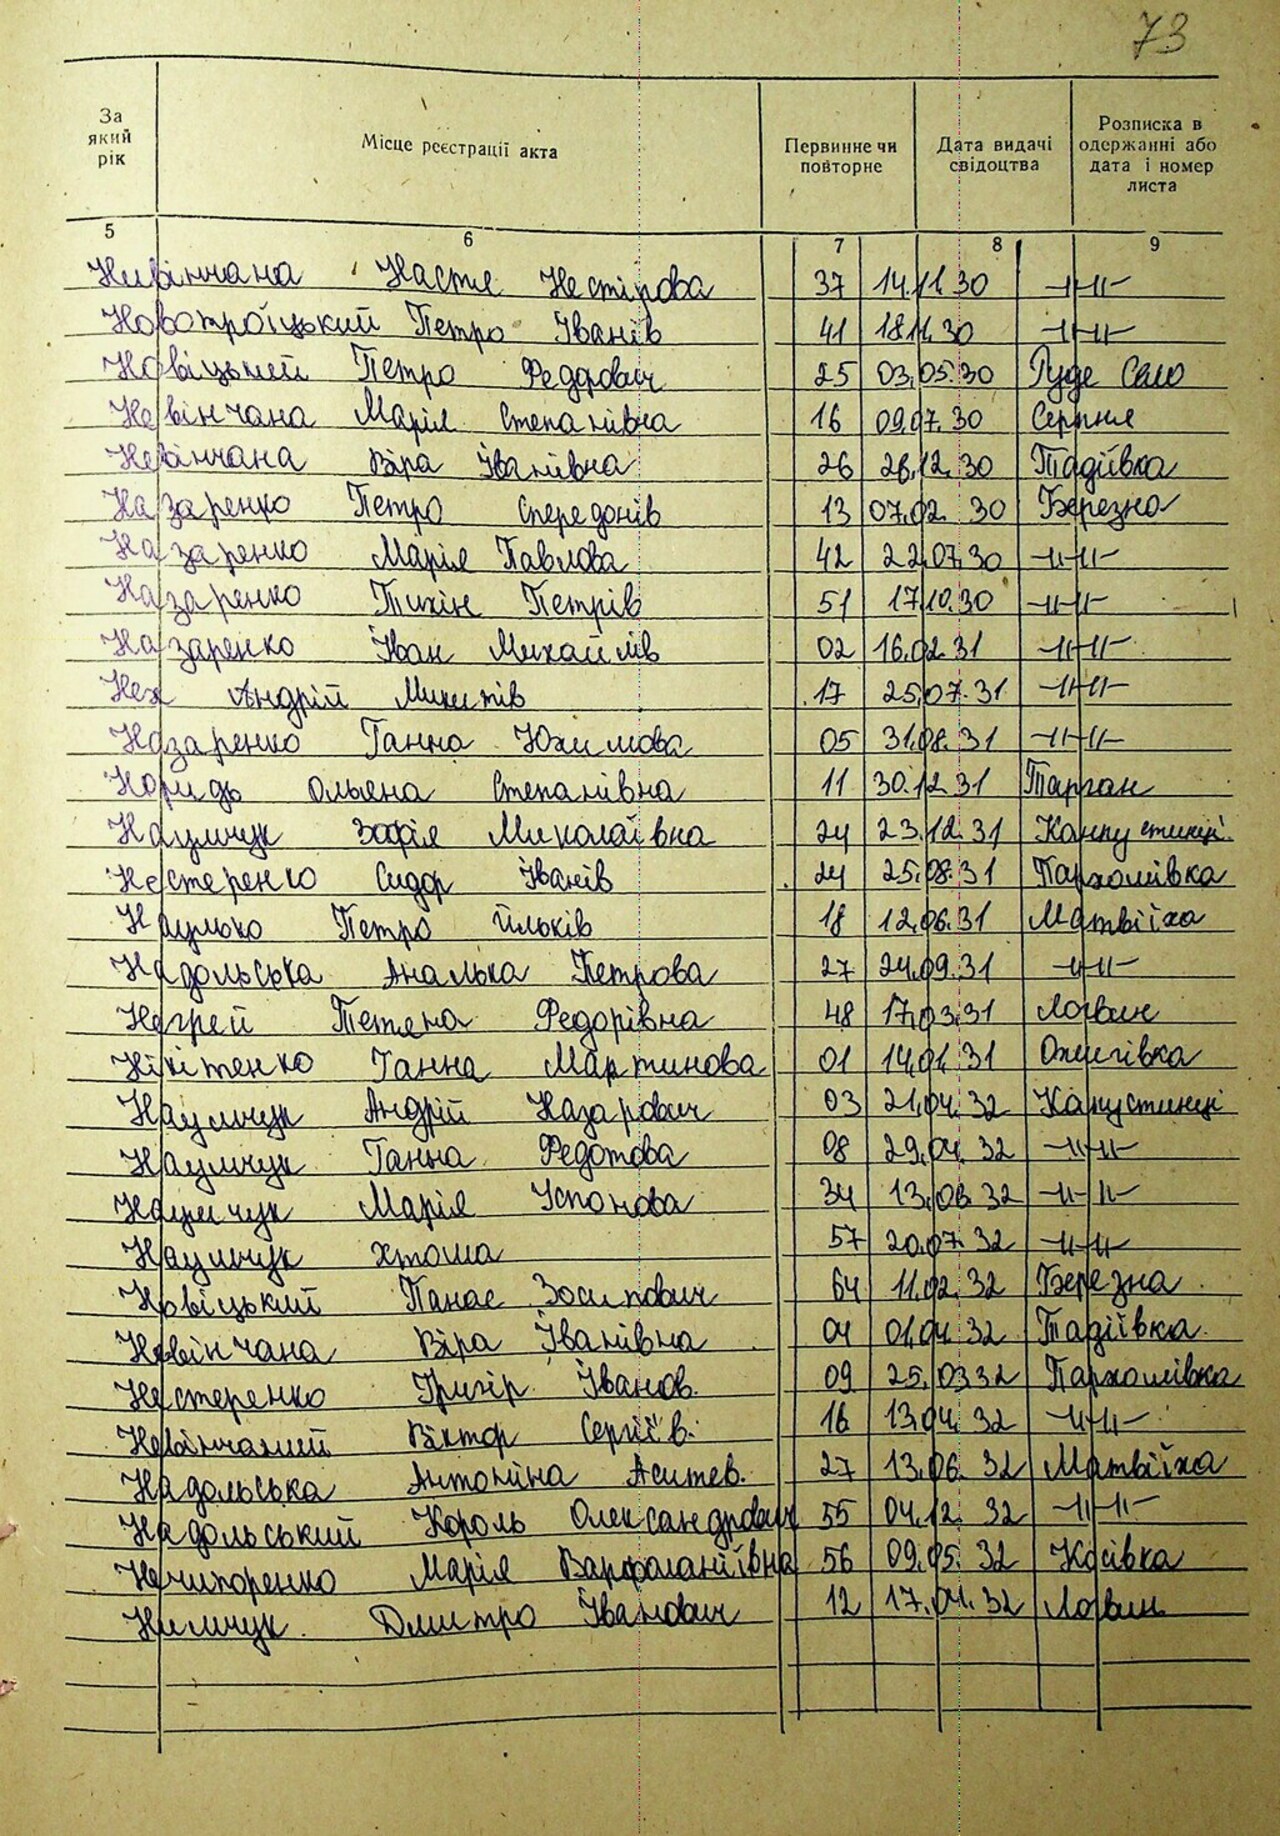 73
За який рік
Місце реєстрації акта
Первинне чи повторне
Дата видачі свідоцтва
Розписка в одержанні або дата і номер листа
5 6 7 8 9
Невінчана Настя Нестірова 37 14.11.30 -11-11-
Новотроїцький Петро Іванів 41 18.11.30 -11-11-
Новіцький Петро Федорович 25 03.05.30 Руде Село
Невінчана Марія Степанівна 16 09.07.30 Серпня
Невінчана Віра Іванівна 26 26.12.30 Тадіївка
Назаренко Петро Спередонів 13 07.02.30 Березна
Назаренко Марія Павлова 42 22.07.30 -11-11-
Назаренко Тихін Петрів 51 17.10.30 -11-11-
Назаренко Іван Михайлів 02 16.02.31 -11-11-
Нех Андрій Микитів 17 25.07.31 -11-11-
Назаренко Ганна Юхимова 05 31.08.31 -11-11-
Ольяна Степанівна 11 30.12.31 Тарган
Наумчук Зофія Миколаївна 24 23.12.31
Нестеренко Сидор Іванів 24 25.08.31 Пархомівка
Наумко Петро Ільків 18 12.06.31 Матвіїха
Надольська Аналька Петрова 27 24.09.31 -11-11-
Негрей Тетяна Федорівна 48 17.03.31 Логвин
Нікітенко Ганна Мартинова 01 14.01.31 Ожигівка
Наумчук Андрій Назарович 03 21.04.32 Капустинці
Наумчук Ганна Федотова 08 29.04.32 -11-11-
Наумчук Марія 34 13.06.32 -11-11-
Наумчук Хтоша 57 20.07.32 -11-11-
Новіцький Панас Зосипович 64 11.02.32 Березна
Невінчана Віра Іванівна 04 01.04.32 Тадіївка
Нестеренко Григір Іванов. 09 25.03.32 Пархомівка
Невінчаний Віктор Сергіїв. 16 13.04.32 -11-11-
Надольська Антоніна 27 13.06.32 Матвіїха
Надольський Король Олександрович 55 04.12.32 -11-11-
Нечипоренко Марія 56 09.05.32 Косівка
Нимчук Дмитро Іванович 12 17.04.32 Логвин